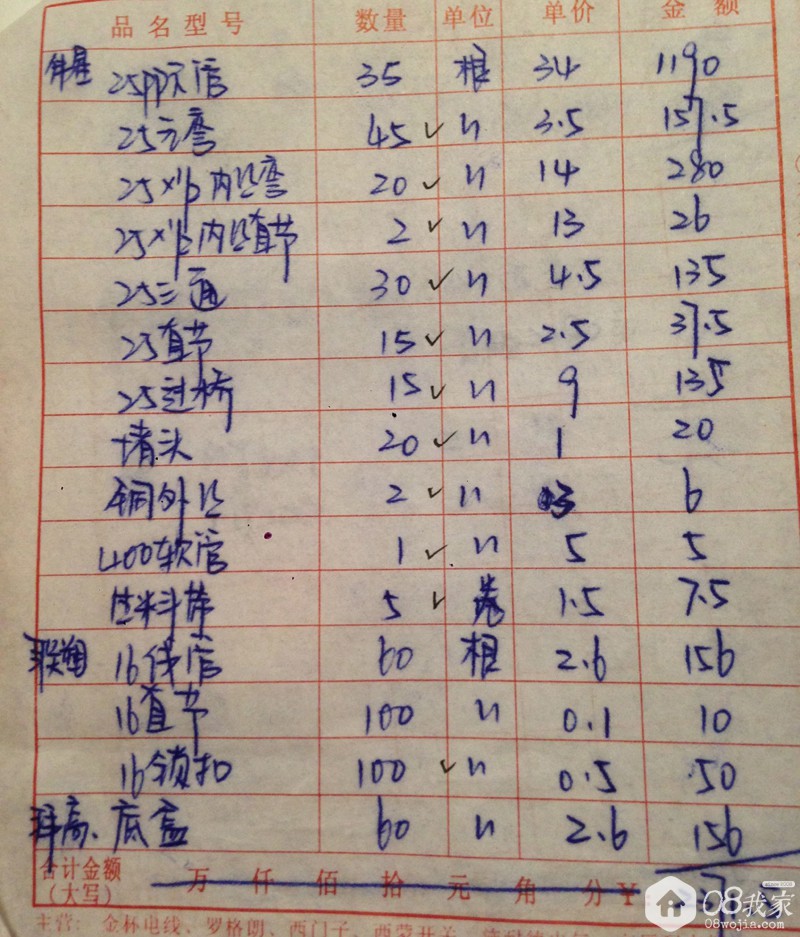 品名型号 数量 单位 单价 金额
伟星 25PPR管 35 根 34 1190
25弯 45 〃 3.5 157.5
25×1/2内丝弯 20 〃 14 280
25×1/2内丝直节 2 〃 13 26
25三通 30 〃 4.5 135
25直节 15 〃 2.5 37.5
25过桥 15 〃 9 135
堵头 20 〃 1 20
铜外丝 2 〃 3 6
400软管 1 〃 5 5
生料带 5 卷 1.5 7.5
联塑 16线管 60 根 2.6 156
16直节 100 〃 0.1 10
16锁扣 100 〃 0.5 50
科高、底盒 60 〃 2.6 156
合计金额
(大写) 万 仟 佰 拾 元 角 分 ¥
主营: 金杯电线、罗格朗、西门子、西蒙开关
08我家
08wojia.com